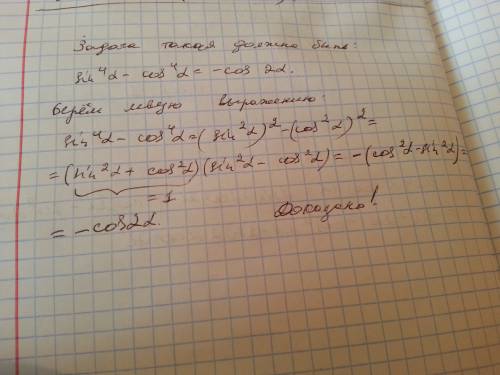 Задача такая должно быть:
sin⁴α - cos⁴α = -cos 2α.
Берём левую выражению:
sin⁴α - cos⁴α = (sin²α)² - (cos²α)² =
= (sin²α + cos²α)(sin²α - cos²α) = -(cos²α - sin²α) =
= 1
= -cos2α.
Доказано!